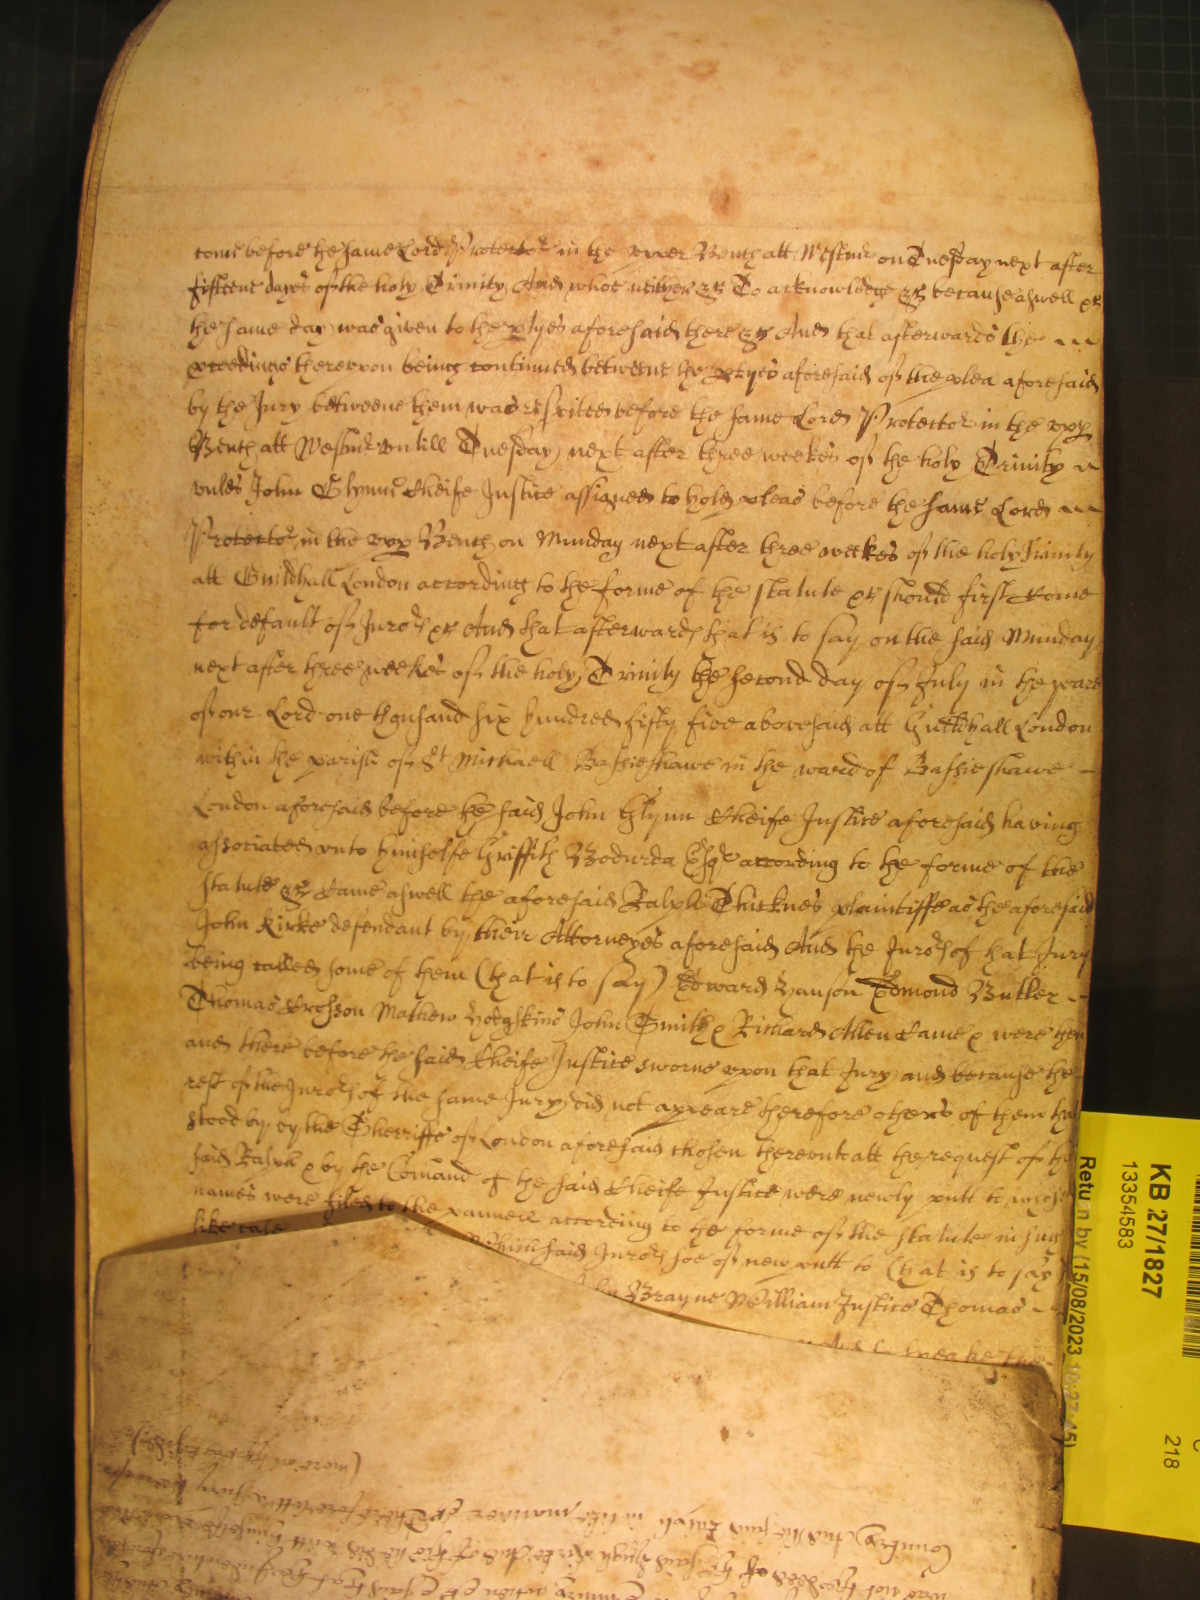 come before the same Lord Protector in the upper Bench att Westmr on Tuesday next after
fifteene dayes of the holy Trinity And whoe neither &c To acknowledge &c because aswell &c
the same day was given to the ptyes aforesaid there &c And that afterwards the
pceedings thereupon being continued betweene the ptyes aforesaid of the plea aforesaid
by the Jury betweene them was respited before the same Lord Protector in the upp
Bench att Westmr untill Tuesday next after three weekes of the holy Trinity
unles John Glynne Cheife Justice assigned to hold pleas before the same Lord
Protector in the upp Bench on Munday next after three weekes of the holy Trinity
att Guildhall London according to the forme of the statute &c should first Come
for default of Juror &c And that afterwards that is to say on the said Munday
next after three weekes of the holy Trinity the second day of July in the yeare
of our Lord one thousand six hundred fifty five abovesaid att Guildhall London
within the parish of St Michaell Bassieshawe in the ward of Bassieshawe
London aforesaid before the said John Glynn Cheife Justice aforesaid having
associated unto himselfe Griffith Bodurda Esqr according to the forme of the
statute &c Came aswell the aforesaid Ralph Thicknes plaintiffe as the aforesaid
John Kirke defendant by their Attorneyes aforesaid And the Jurors of that Jury
being called some of them (that is to say) Edward Hanson Edmond Butler
Thomas Crosson Mathew Hodgskins John Smith & Richard Allen Came & were then
and there before the said Cheife Justice sworne upon that Jury and because the
rest of the Jurors of the same Jury did not appeare therefore others of them that
stood by by the Sherriffs of London aforesaid chosen thereunto att the request of the
said Ralph & by the Comand of the said Cheife Justice were newly putt to whose
names were filed to the pannell according to the forme of the statute in such
like case
which said Jurors soe of new putt to (that is to say)
Brayne William Justice Thomas
And to speake the
Return by (15/08/2023
KB 27/1827
13354583
218
(more on the back side)
Country And the said Ralph in like manner &c Therefore lett a Jury
was not the deed of the said Hugh Kirke And of this he did putt himselfe